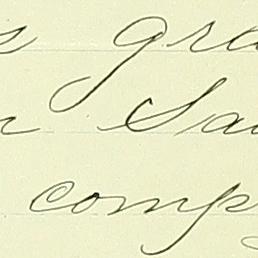 s gre
r Sa
comp